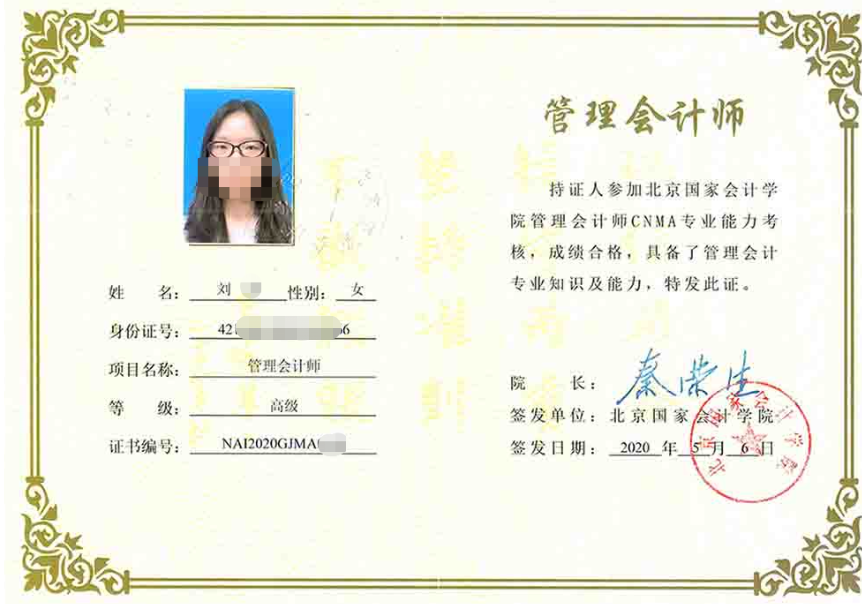 姓 名： 刘 性别： 女
身份证号： 42 6
项目名称： 管理会计师
等 级： 高级
证书编号： NAI2020GJMA
管理会计师
持证人参加北京国家会计学
院管理会计师CNMA专业能力考
核，成绩合格，具备了管理会计
专业知识及能力，特发此证。
院 长： 秦荣生
签发单位：北京国家会计学院
签发日期： 2020 年 5 月 6 日
北京国家会计学院